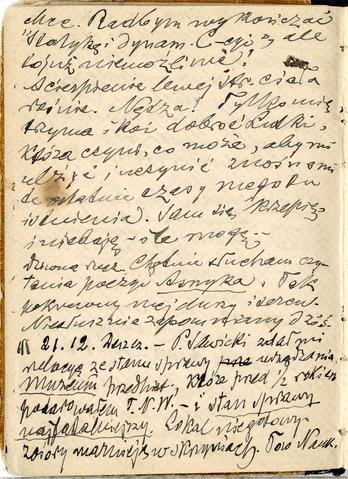 chce. Radbym wykończać
"Statykę i dynam. C-cyj", ale
to już niemożliwe!
Ścierpnienie lewej str. ciała
rośnie. Nędza! Tylko mię
trzyma i koi dobroć Ludki,
która czyni, co może, aby mi
ulżyć i uczynić znośnemi
te ostatnie czasy mego tu
istnienia. Sam się krzepię
i niełkają - ile mogę.-
Dziwna rzecz. Chętnie słucham czy-
tania poezyj Asnyka. Tak
pokrewny mej duszy i sercu.
Niesłusznie zapomniany dziś.
21.12. Deszcz. - P. Sawicki zdał mi
relację ze stanu sprawy urządzenia
Muzeum przedhist., które przed ½ rokiem
podarowałem T.N.W. - i stan sprawy
najfatalniejszy. Lokal niegotowy
zbiory marnieją w skrzyniach. Tow. Nauk.